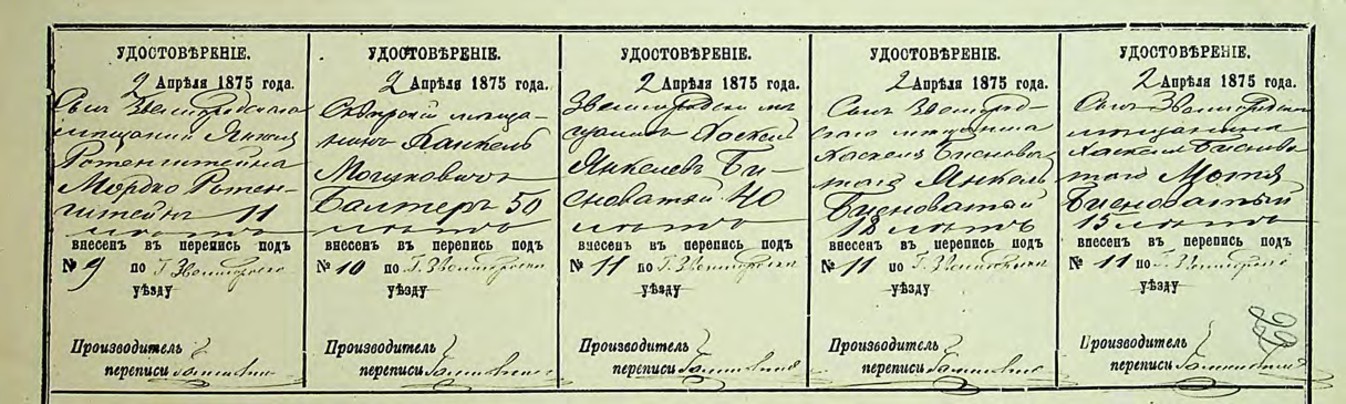 УДОСТОВѢРЕНІЕ.
2 Апрѣля 1875 года.
Сынъ Звенигородскаго
мѣщанина Янкеля
Ротенштейна
Мордко Ротен-
штейнъ 11
лѣтъ
внесенъ въ перепись подъ
№ 9 по Г. Звенигородке
уѣзду
Производитель
переписи
УДОСТОВѢРЕНІЕ.
2 Апрѣля 1875 года.
мѣща-
нинъ Янкель
Мошковичъ
Балтеръ 50
лѣтъ
внесенъ въ перепись подъ
№ 10 по Г. Звенигородке
уѣзду
Производитель
переписи
УДОСТОВѢРЕНІЕ.
2 Апрѣля 1875 года.
Звенигородскій мѣ-
щанинъ Хаскель
Янкелевъ Би-
сноватый 40
лѣтъ
внесенъ въ перепись подъ
№ 11 по Г. Звенигородке
уѣзду
Производитель
переписи
УДОСТОВѢРЕНІЕ.
2 Апрѣля 1875 года.
Сынъ Звенигород-
скаго мѣщанина
Хаскеля Бисноват-
таго Янкель
Бисноватый
18 лѣтъ
внесенъ въ перепись подъ
№ 11 по Г. Звенигородке
уѣзду
Производитель
переписи
УДОСТОВѢРЕНІЕ.
2 Апрѣля 1875 года.
Сынъ Звенигородскаго
мѣщанина
Хаскеля Биснова-
таго Мотя
Бисноватый
15 лѣтъ
внесенъ въ перепись подъ
№ 11 по Г. Звенигородке
уѣзду
Производитель
переписи